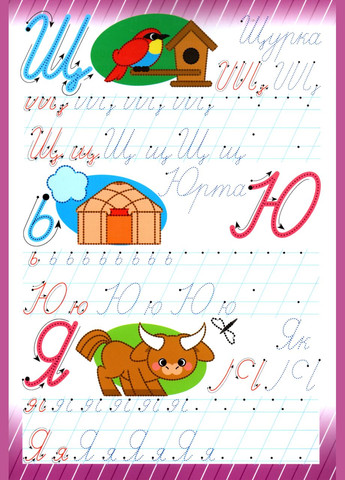 Щ Щурка
Щ Щ
щ щ щ щ щ
Щ щ Щ щ Щ щ
Юрта
ь Ю
ь ь ь ь ь ь ь ь ь
Ю ю Ю ю Ю ю
Я Як
я я я я я я я
Я я Я Я Я Я Я